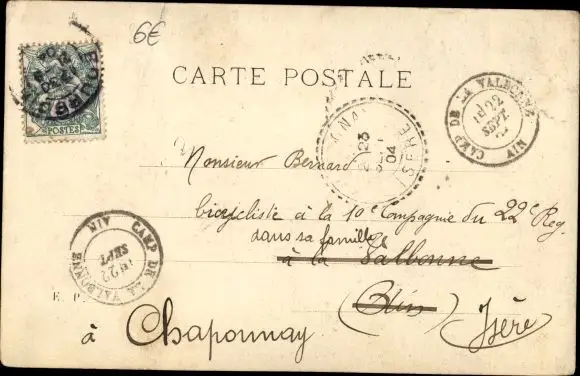 6€
CARTE POSTALE
POSTES
CAMP DE LA VALBONNE
22
SEPT
AIN
ISERE
23
04
Monsieur Bernard
bicycliste à la 10e Compagnie du 22e Reg.
dans sa famille
à la Valbonne
(Ain)
à Chaponnay Isère
CAMP DE LA VALBONNE
22
SEPT
AIN
E. P.